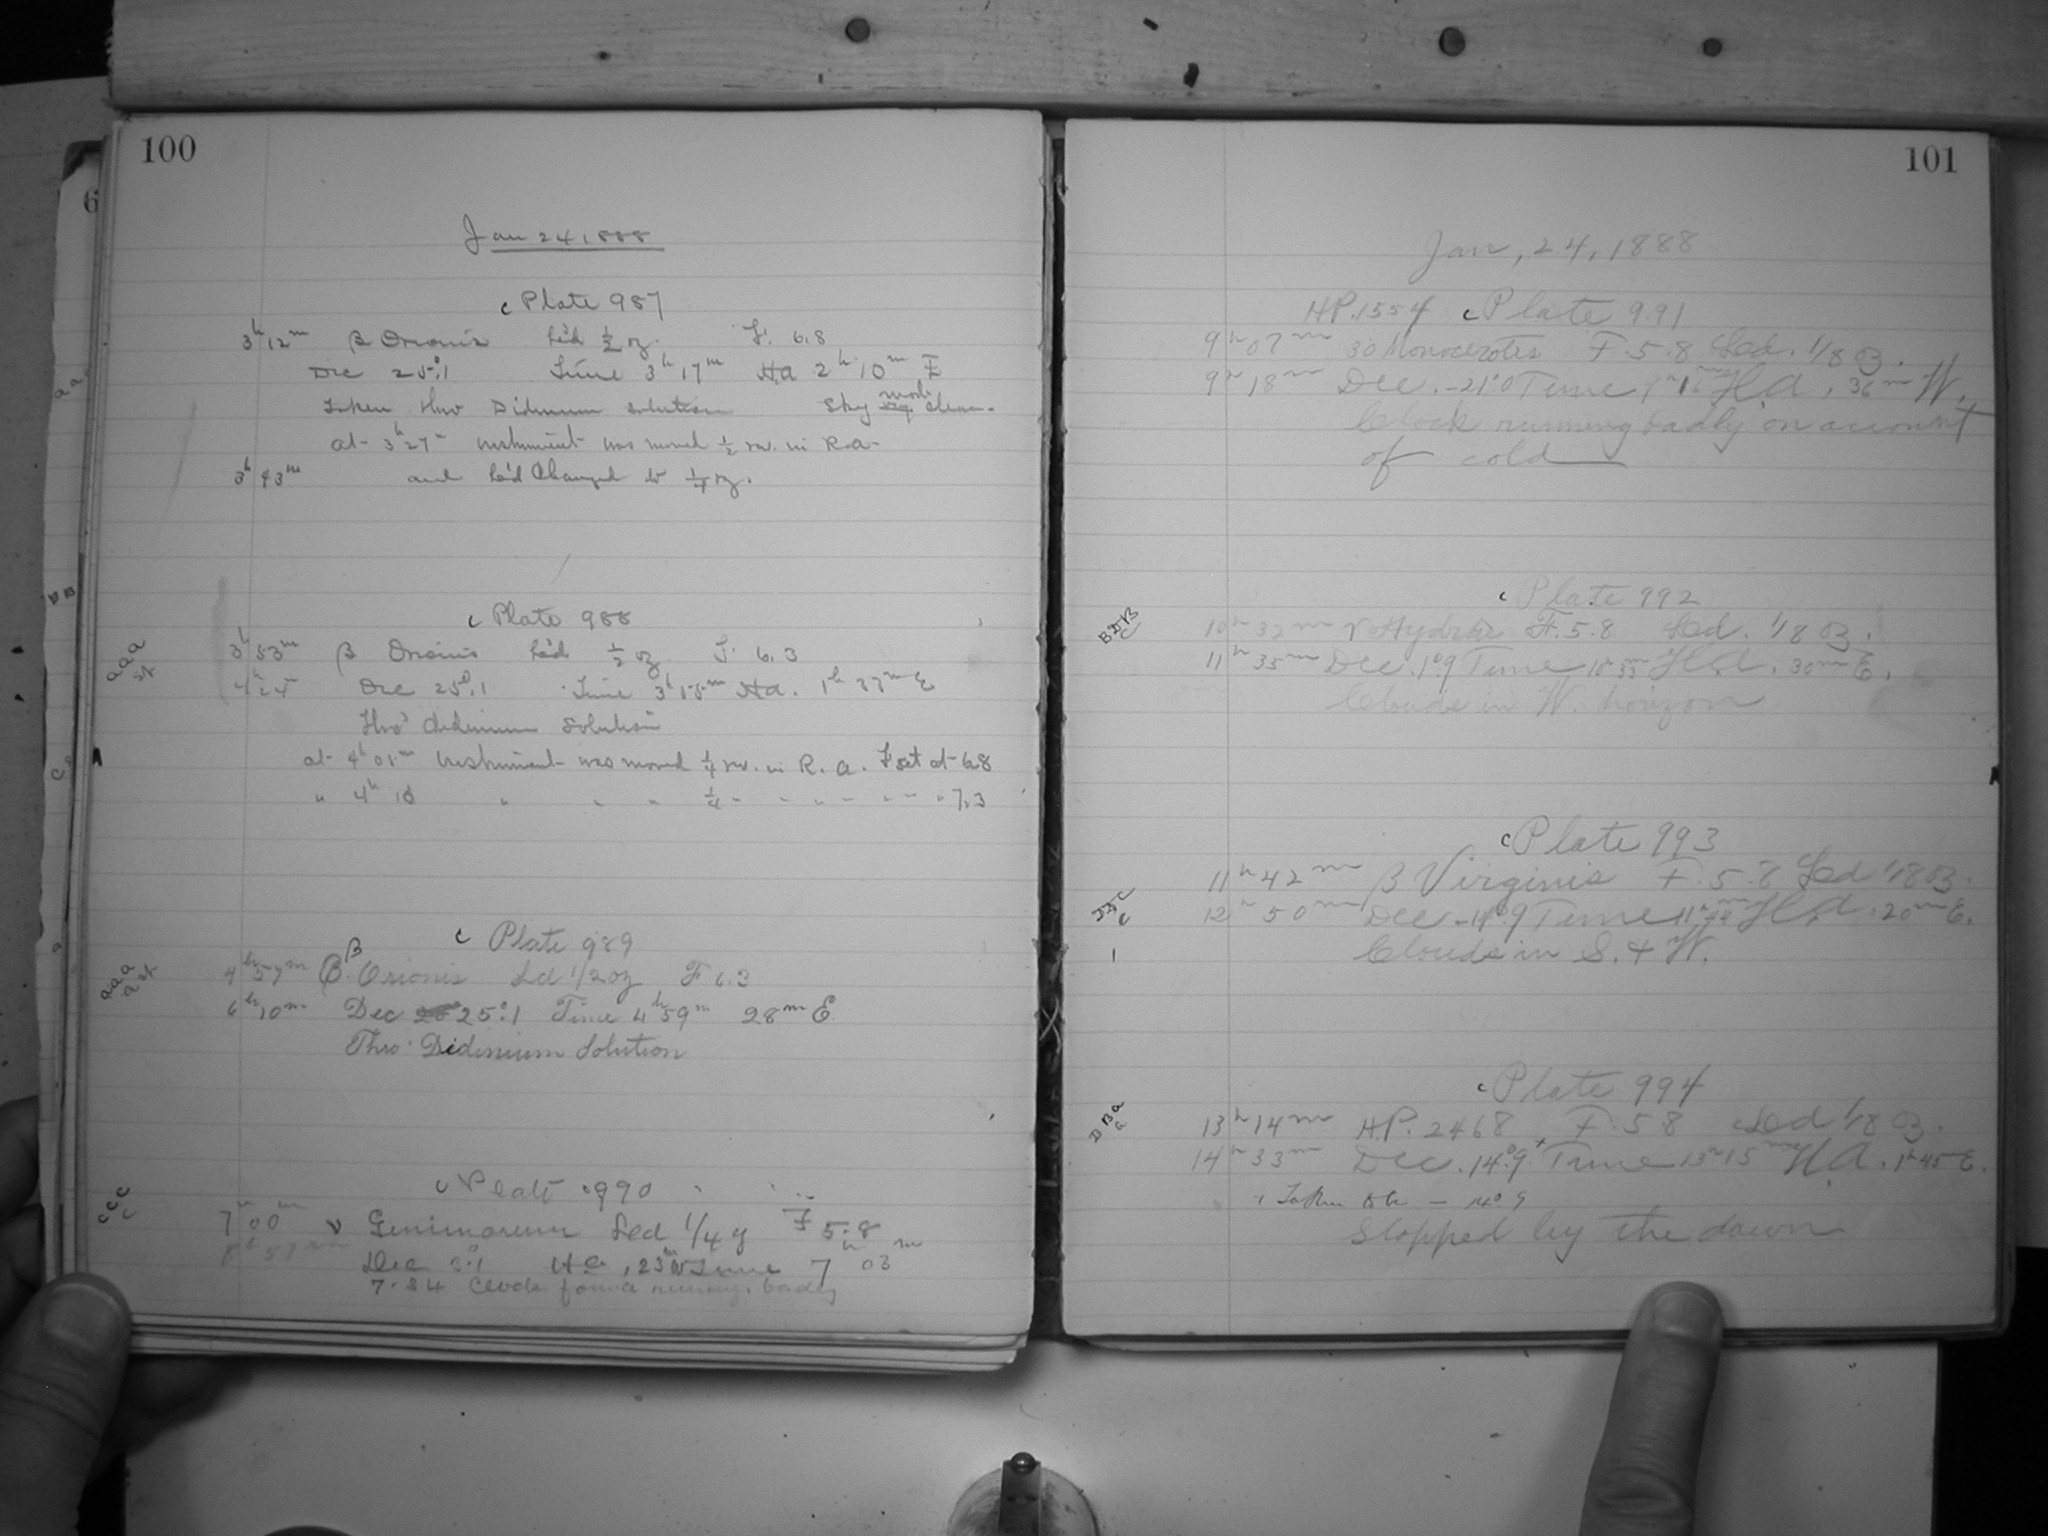 100
Jan 24, 1888
c Plate 987
3h 12m β Orionis Led 1/2 oz. F. 6.8
Dec 25°.1 Time 3h 17m H.a 2h 10m E
Taken thro Didimium solution Sky mod. clear.
at 3h 27m instrument was moved 1/2 rev. in R.a.
3h 43m and led Changed to 1/4 oz.
c Plate 988
aaa
3h 53m β Orionis Led 1/2 oz F. 6.3
Dec 25°.1 Time Ha. 1h E
Thro' didimium Solution
at 4h 01m instrument was moved 1/4 rev. in R. a. F set at 6.8
" 4h " " " 1/4 " " " " " " " 7.3
c Plate 989
aaa
4h 57m β Orionis Ld 1/2 oz F 6.3
6h 10m Dec 25°.1 Time 4h 59m 28m E
Thro' Didimium Solution
c Plate 990
ccc
c
7h 00m ν Geminorum Led 1/4 oz F 5.8
8h 57m Dec Ha, 23m W Time 7h 03m
7.34 Clock found running badly
101
Jan, 24, 1888
HP. 1554 c Plate 991
9h 07m 30 Monocerotis F. 5.8 Led. 1/8 oz.
9h 18m Dec. -21°.0 Time H.a. 36m W.
Clock running badly on account
of cold
c Plate 992
10h 32m ν Hydrae F. 5.8 Led. 1/8 oz.
11h 35m Dec. 1°.9 Time 10h 33m H.a. 30m E.
Clouds in W. horizon
c Plate 993
11h 42m β Virginis F. 5.8 Led 1/8 oz.
12h 50m Dec. -14°.9 Time 11h 44m H.a. 20m E.
Clouds in S. & W.
c Plate 994
13h 14m H.P. 2468 F. 5.8 Led 1/8 oz.
14h 33m Dec. 14°.9 + Time 13h 15m H.A. 1h 45m E.
Taken to be - 14°.9
Stopped by the dawn